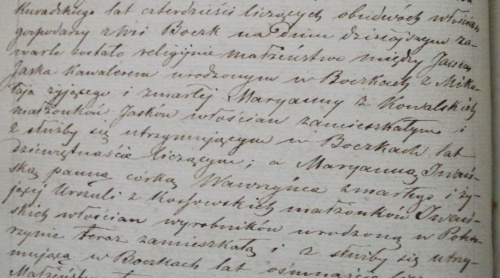 Kuradzkiego lat czterdzieści liczących obudwóch włościan
gospodarzy z wsi Boczk na dniu dzisiejszym za-
warte zostało religijne małżeństwo między Janem
Jaska kawalerem urodzonym w Boczkach z Miko-
łaja żyjącego i zmarłej Maryanny z Kowalskich
małżonków Jasków włościan zamieszkałym i
z służby się utrzymującym w Boczkach lat
dziewiętnaście liczącym; a Maryanną Iwań-
ską panną córką Wawrzyńca zmarłego i ży-
jącej Urszuli z małżonków Iwań-
skich włościan wyrobników urodzoną w
teraz zamieszkałą i z służby się utrzy-
mującą w Boczkach lat